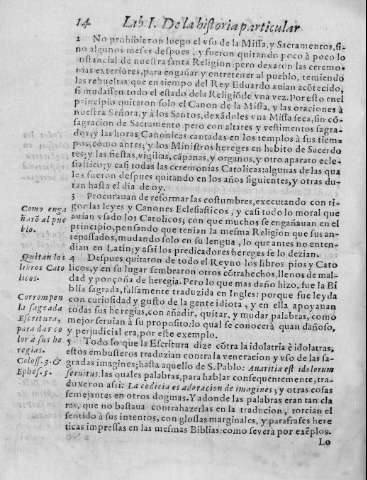 14 Lib. I. De la historia particular
2 No prohibieron luego el vso de la Missa, y Sacramentos, si-
no algunos meses despues, y fueron quitando poco à poco lo
substancial de nuestra santa Religion, pero dexaron las ceremo-
nias exteriores, para engañar y entretener al pueblo, temiendo
las rebueltas que en tiempo del Rey Eduardo auian acõtecido,
si mudassen todo el estado dela Religiõ de vna vez. Por esto enel
principio quitaron solo el Canon de la Missa, y las oraciones à
nuestra Señora, y à los Santos, dexãdoles vna Missa seca, sin cõ-
sagracion de Sacramento pero con altares y vestimentos sagra-
dos, y las horas Canonicas cantadas en los templos à sus tiem-
pos, como antes; y los Ministros hereges en habito de Sacerdo
tes, y las fiestas, vigilias, cãpanas, y organos, y otro aparato ecle-
siastico; y casi todas las ceremonias Catolicas: algunas de las qua
les fueron despues quitando en los años siguientes, y otras du-
ran hasta el dia de oy.
3 Procurauan de reformar las costumbres, executando con ri-
Como enga
gor las leyes y Canones Eclesiasticos, y casi todo lo moral que
ñarõ al pue
auian vsado los Catolicos; con que muchos se engañauan en el
blo.
principio, pensando que tenian la mesma Religion que sus an-
tepassados, mudando solo en su lengua, lo que antes no enten-
dian en Latin; y assi los predicadores hereges se lo dezian.
Quitan los
4 Despues quitaron de todo el Reyno los libros pios y Cato
libros Cato
licos, y en su lugar sembraron otros cõtrahechos, llenos de mal-
licos.
dad y ponçoña de heregia. Pero lo que mas daño hizo, fue la Bi
blia sagrada, falsamente traduzida en Ingles: porque fue leyda
Corrompen
con curiosidad y gusto de la gente idiota, y en ella apoyauan
la sagrada
todas sus heregias, con añadir, quitar, y mudar palabras, como
Escritura,
mejor seruian à su proposito: lo qual se conocerà quan dañoso,
para dar co
y perjudicial era, por este exemplo.
lor à sus he
5 Todo lo que la Escritura dize cõtra la idolatria è idolatras,
regias.
estos embusteros traduzian contra la veneracion y vso de las sa-
Coloss. 3. &
gradas imagines; hasta aquello de S. Pablo: Auaritia est idolorum
Ephes. 5.
seruitus: las quales palabras, para hablar consequentemente, tra-
duxeron assi: La codicia es adoracion de imagines; y otras cosas
semejantes en otros dogmas. Y adonde las palabras eran tan cla
ras, que no bastaua contrahazerlas en la traducion, torcian el
sentido à sus intentos, con glossas marginales, y parafrases here
ticas impressas en las mesmas Biblias: como se verà por exẽplos.
Lo